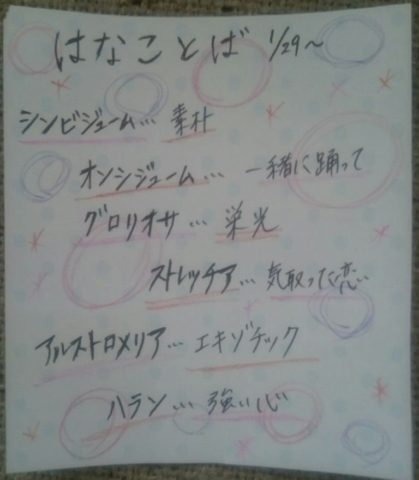 はなことば 1/29〜
シンビジューム… 素朴
オンシジューム… 一緒に踊って
グロリオサ… 栄光
ストレッチア… 気取った恋
アルストロメリア… エキゾチック
ハラン… 強い心